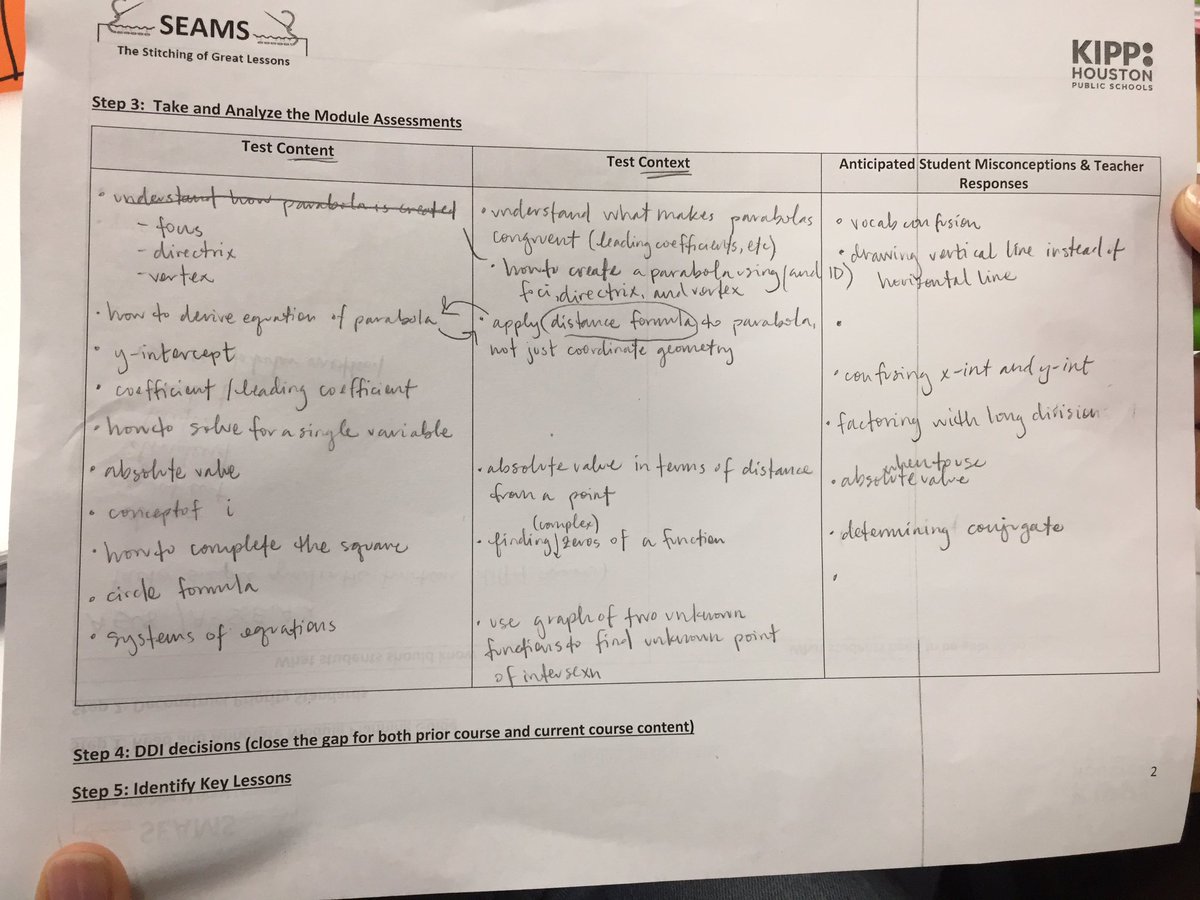 SEAMS
The Stitching of Great Lessons
KIPP:
HOUSTON
PUBLIC SCHOOLS
Step 3: Take and Analyze the Module Assessments
Test Content
• understand how parabola is created
- focus
- directrix
- vertex
• how to derive equation of parabola
• y-intercept
• coefficient / leading coefficient
• how to solve for a single variable
• absolute value
• concept of i
• how to complete the square
• circle formula
• systems of equations
Test Context
• understand what makes parabolas
congruent (leading coefficients, etc)
• how to create a parabola using (and ID)
foci, directrix, and vertex
• apply distance formula to parabola,
not just coordinate geometry
• absolute value in terms of distance
from a point
(complex)
• finding zeros of a function
• use graph of two unknown
functions to find unknown point
of intersexn
Anticipated Student Misconceptions & Teacher
Responses
• vocab confusion
• drawing vertical line instead of
horizontal line
•
• confusing x-int and y-int
• factoring with long division
when to use
• absolute value
• determining conjugate
•
Step 4: DDI decisions (close the gap for both prior course and current course content)
Step 5: Identify Key Lessons
2